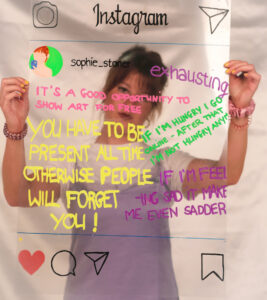 Instagram
sophie_stoner
exhausting
IT'S A GOOD OPPORTUNITY TO
SHOW ART FOR FREE
YOU HAVE TO BE
PRESENT ALL TIME
OTHERWISE PEOPLE
WILL FORGET
YOU!
IF I'M HUNGRY I GO
ONLINE - AFTER THAT
I'M NOT HUNGRY ANYM.
IF I'M FEEL
-ING SAD IT MAKE
ME EVEN SADDER